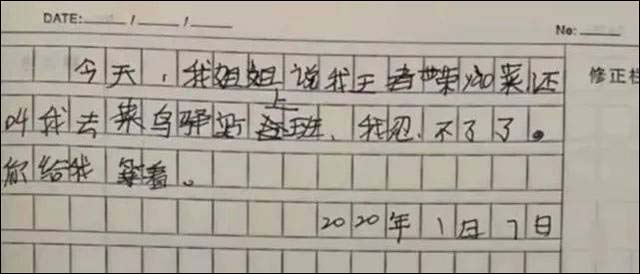 DATE: / /
No:
今天，我姐姐说我王者荣菜还
修正栏
叫我去菜鸟驿站上班，我忍不了了。
你给我等着。
2020年1月7日